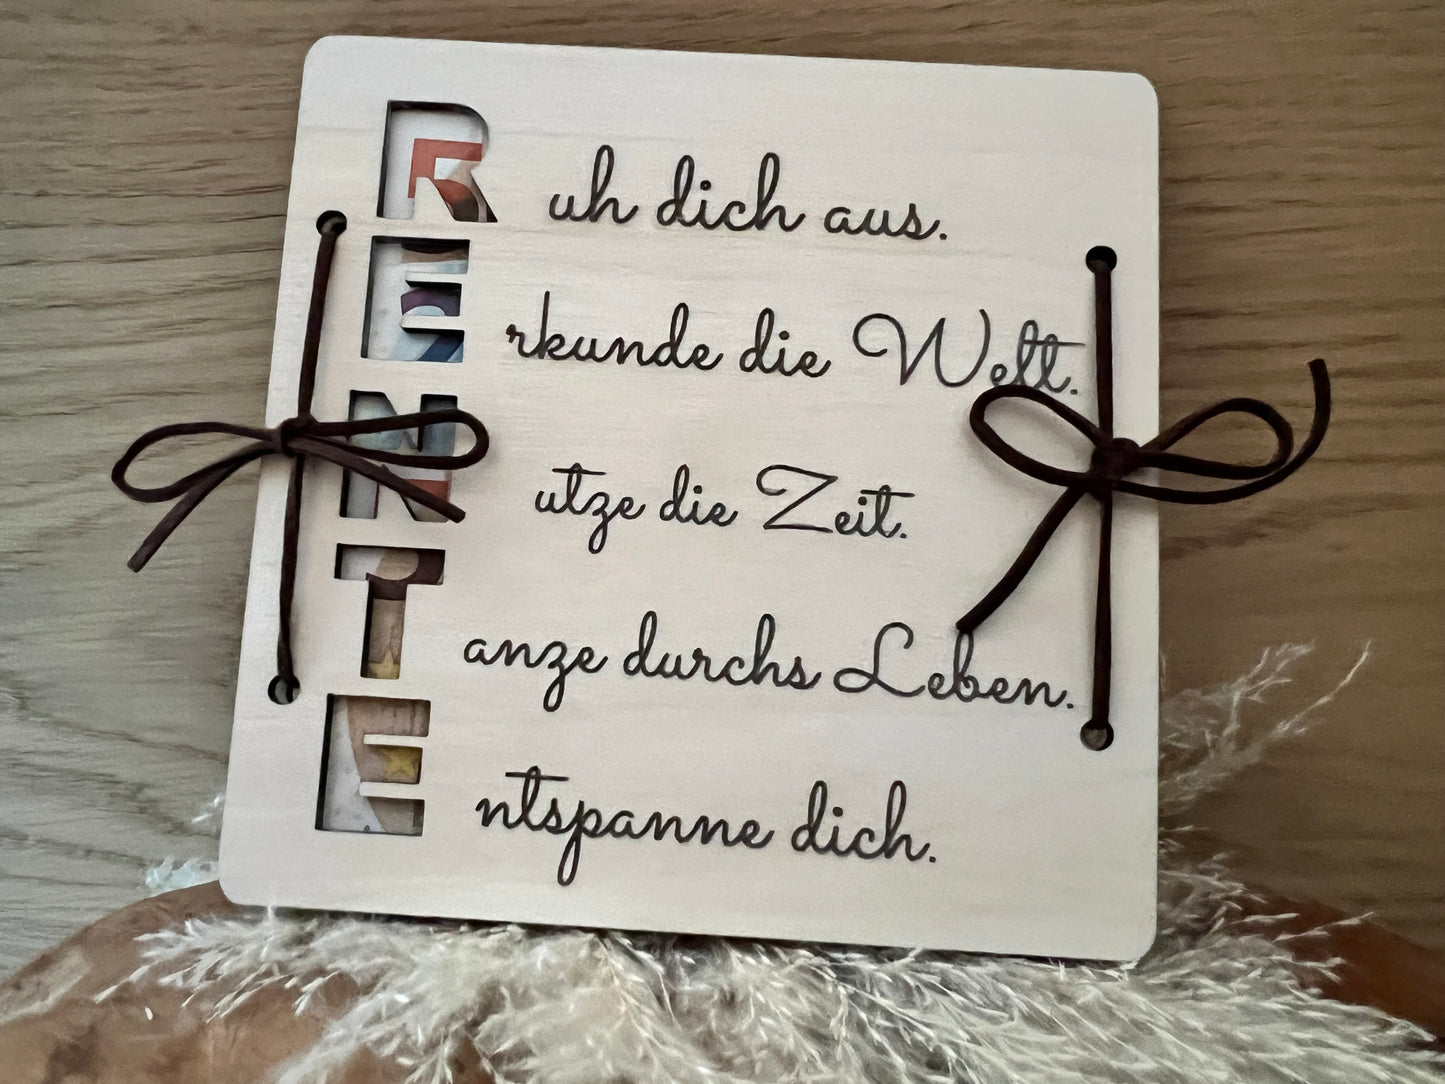 Ruh dich aus.
Erkunde die Welt.
Nutze die Zeit.
Tanze durchs Leben.
Entspanne dich.